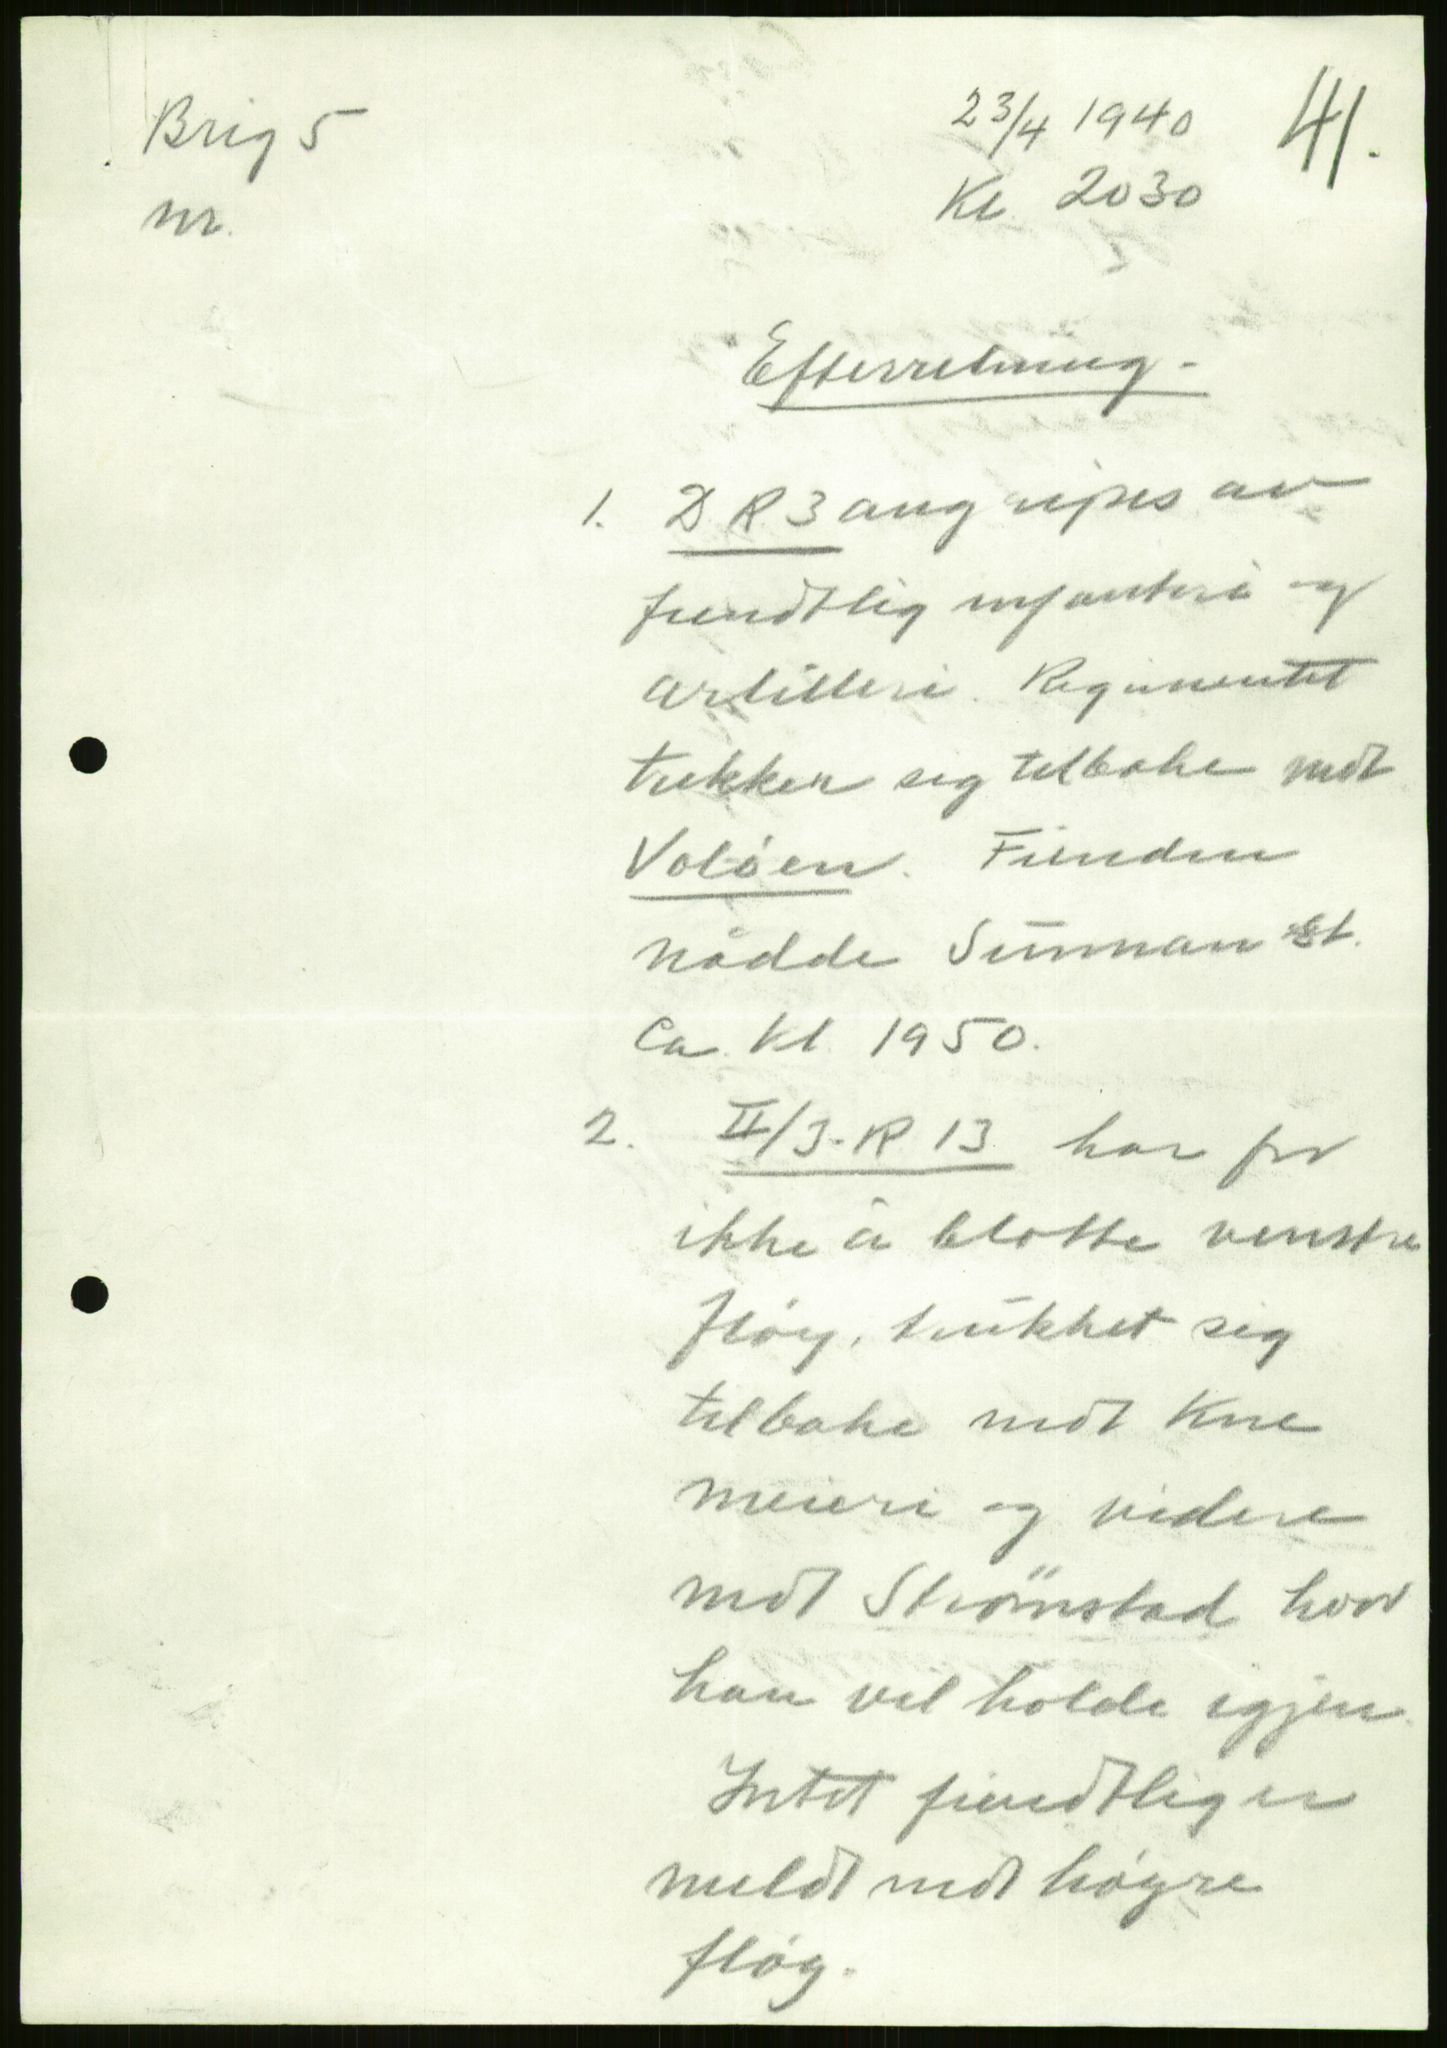 Brig 5
nr.
23/4 1940
Kl. 2030
41.
Efterretning.
1. D R. 3 angripes av
fiendtlig infanteri og
artilleri. Regimentet
trekker sig tilbake mot
Volden. Fienden
nådde Sunnan st.
Ca. kl. 1950.
2. II/I.R. 13 har for
ikke å blotte venstre
fløy, trukket sig
tilbake mot Kne
meieri og videre
mot Strømstad hvor
han vil holde igjen.
Intet fiendtlig er
meldt mot høyre
fløy.